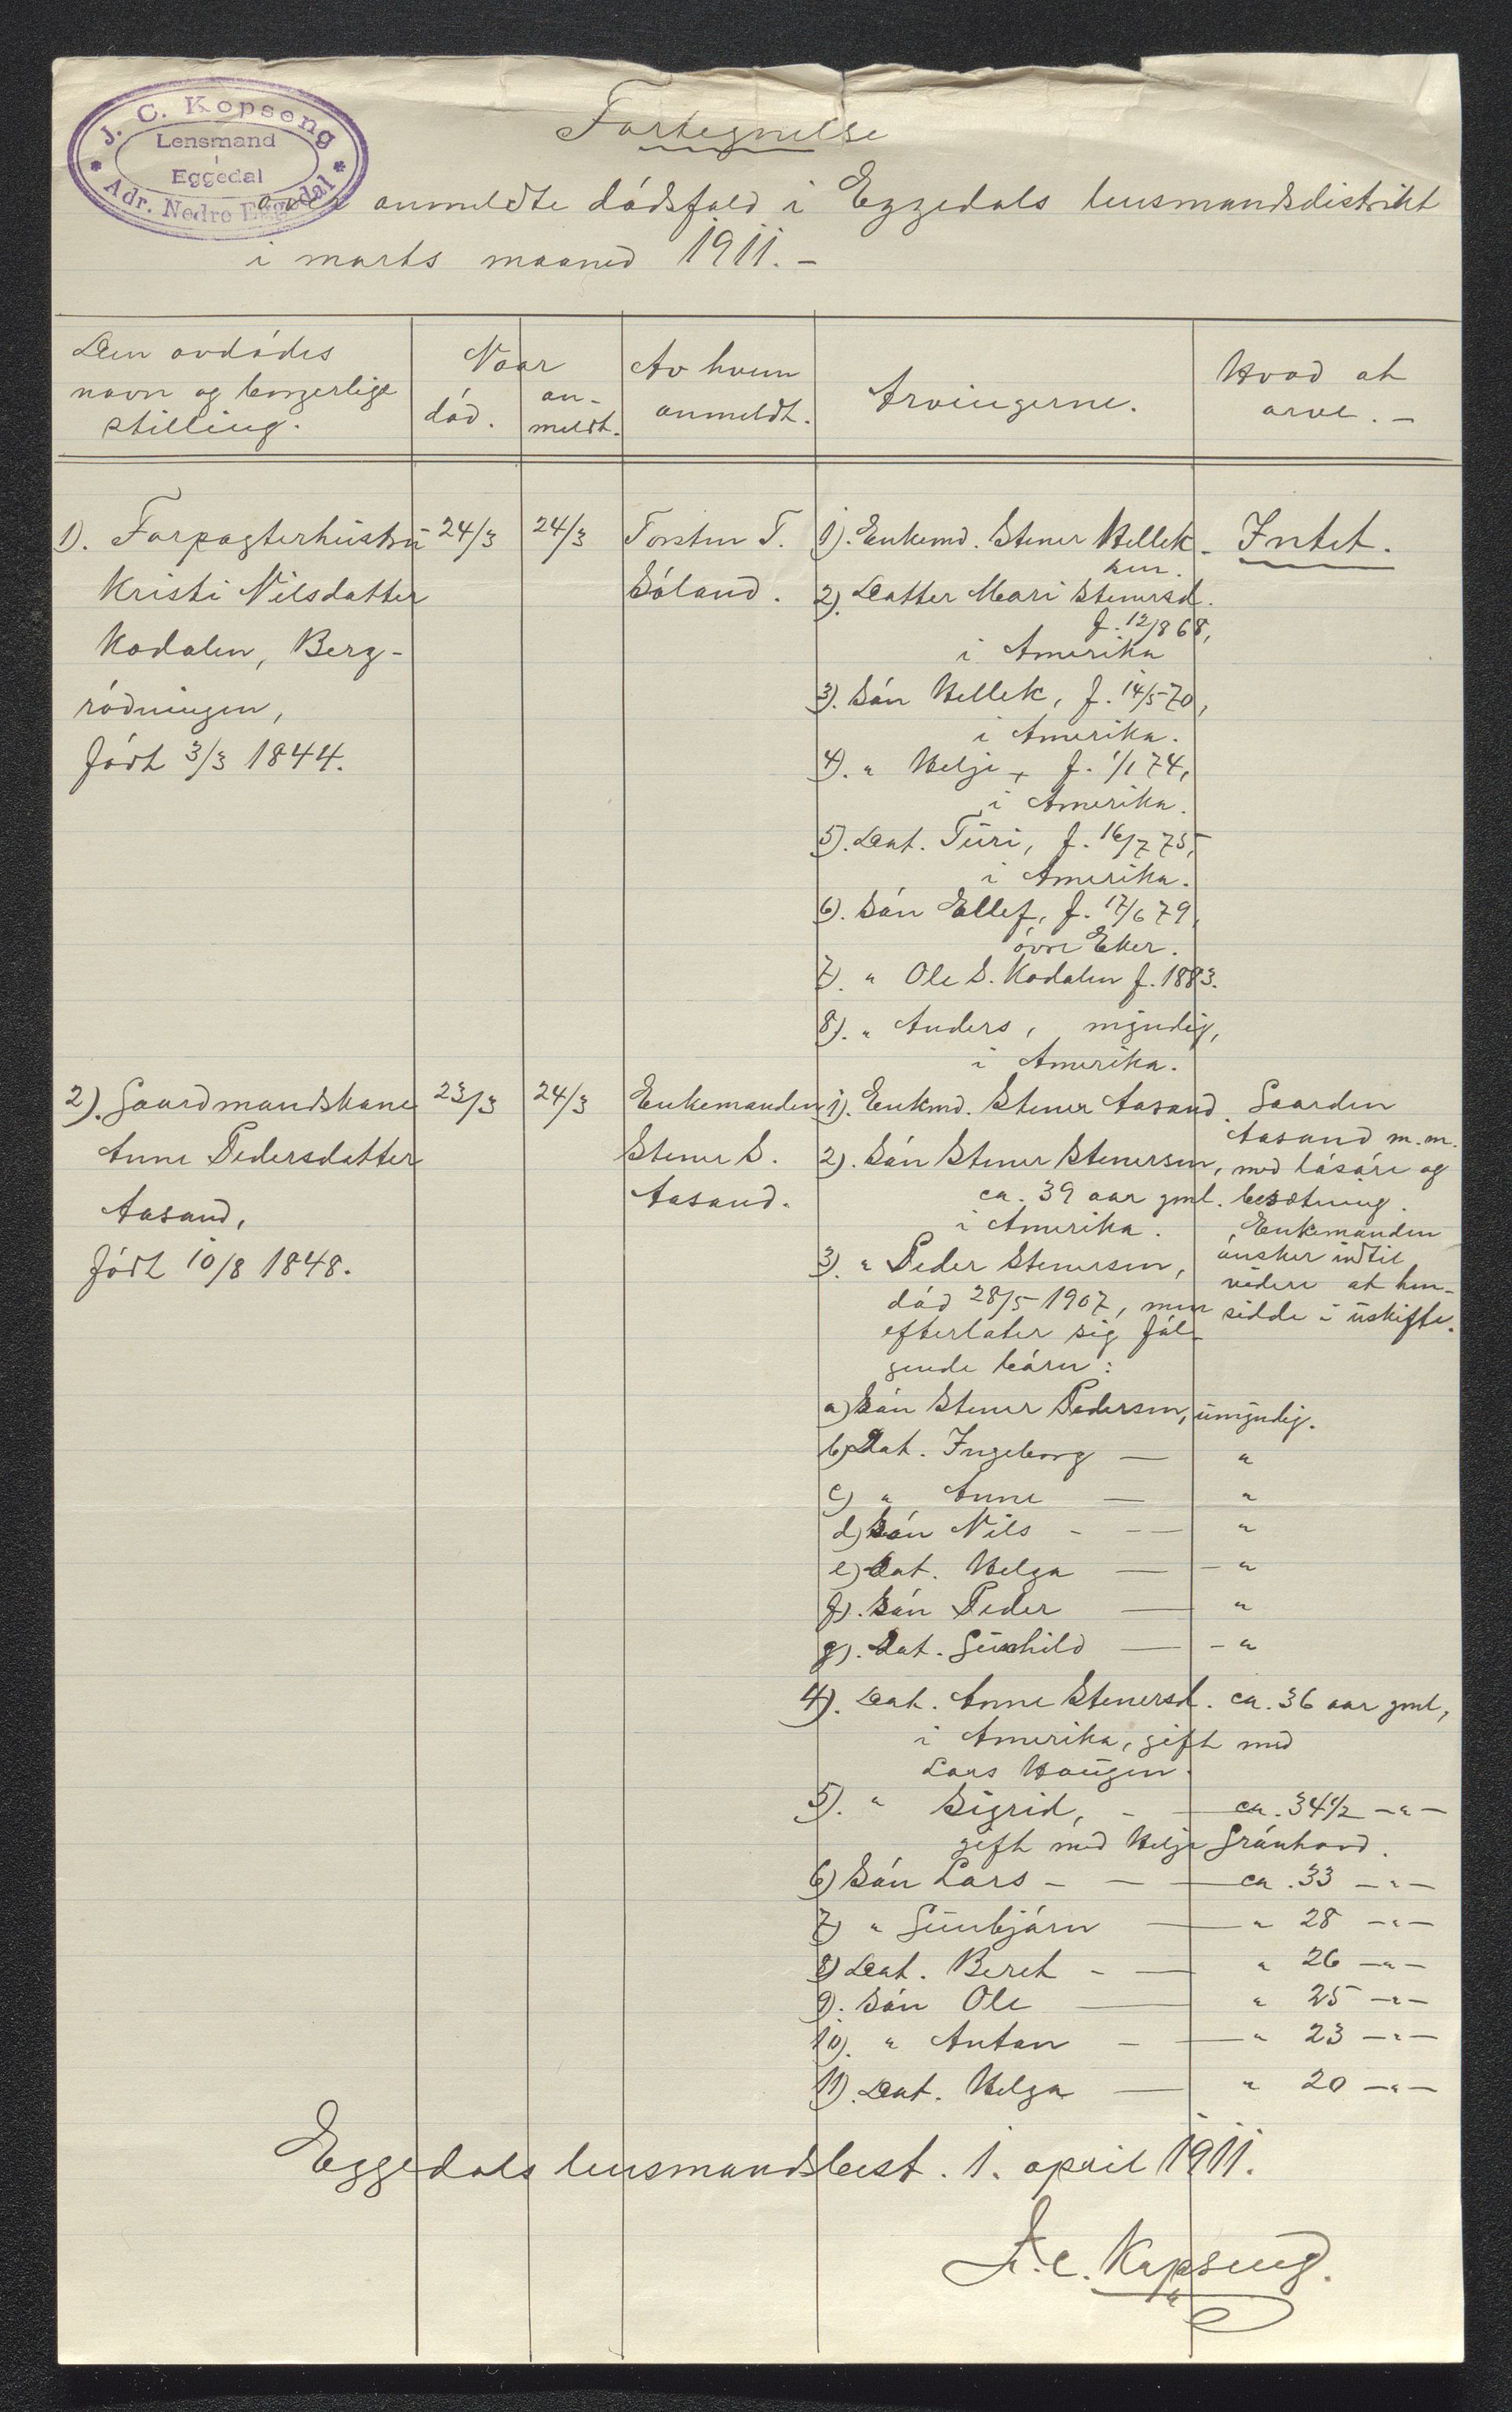 J. C. Kopseng
Lensmand
i
Eggedal
Adr. Nedre Eggedal
Fortegnelse
over anmeldte dódsfald i Eggedals lensmandsdistrikt
i marts maaned 1911. –
Den avdódes
navn og borgerlige
stilling.
Naar
dód.
an-
meldt.
Av hvem
anmeldt.
Arvingerne.
Hvad at
arve. –
1). Forpagterhustru
Kristi Nilsdatter
Kadalen, Berg-
ródningen,
fódt 3/3 1844.
24/3
24/3
Torsten T.
Sóland.
1). Enkemd. Stener Hellek-
sen.
2). Datter Mari Stenersd.
f. 12/8 68,
i Amerika
3). Són Hellek, f. 14/5 70,
i Amerika.
4). " Helje, f. 1/1 74,
i Amerika.
5). Dat. Turi, f. 16/7 75,
i Amerika.
6). Són Ellef, f. 17/6 79,
óvre Eker.
7). " Ole S. Kadalen f. 1883.
8). " Anders, myndig,
i Amerika.
Intet.
2). Gaardmandskone
Anne Pedersdatter
Aasand,
fódt 10/8 1848.
23/3
24/3
Enkemanden
Stener S.
Aasand.
1). Enkmd. Stener Aasand.
2). Són Stener Stenersen,
ca. 39 aar gml.
i Amerika.
3). " Peder Stenersen,
dód 28/5 1907, men
efterlater sig fól-
gende bórn:
Gaarden
Aasand m.m.
med lósóre og
besætning.
Enkemanden
ónsker indtil
videre at hen-
sidde i uskifte.
a) Són Stener Pedersen, umyndig.
b) Dat. Ingeborg — "
c) " Anne — "
d) Són Nils - — "
e) Dat. Helga — - "
f). Són Peder — "
g). Dat. Gunhild — - "
4). Dat. Anne Stenersd. ca. 36 aar gml,
i Amerika, gift med
Lars Haugen.
5). " Sigrid, - — ca. 34 1/2 — " —
gift med Helje Grónhovd.
6) Són Lars - — — ca. 33 — " —
7) " Gunbjórn — " 28 — " —
8) Dat. Beret - — " 26 — " —
9). Són Ole — " 25 — " —
10). " Anton - — " 23 — " —
11). Dat. Helga — " 20 — " —
Eggedals lensmandsbest. 1. april 1911.
J. C. Kopseng.